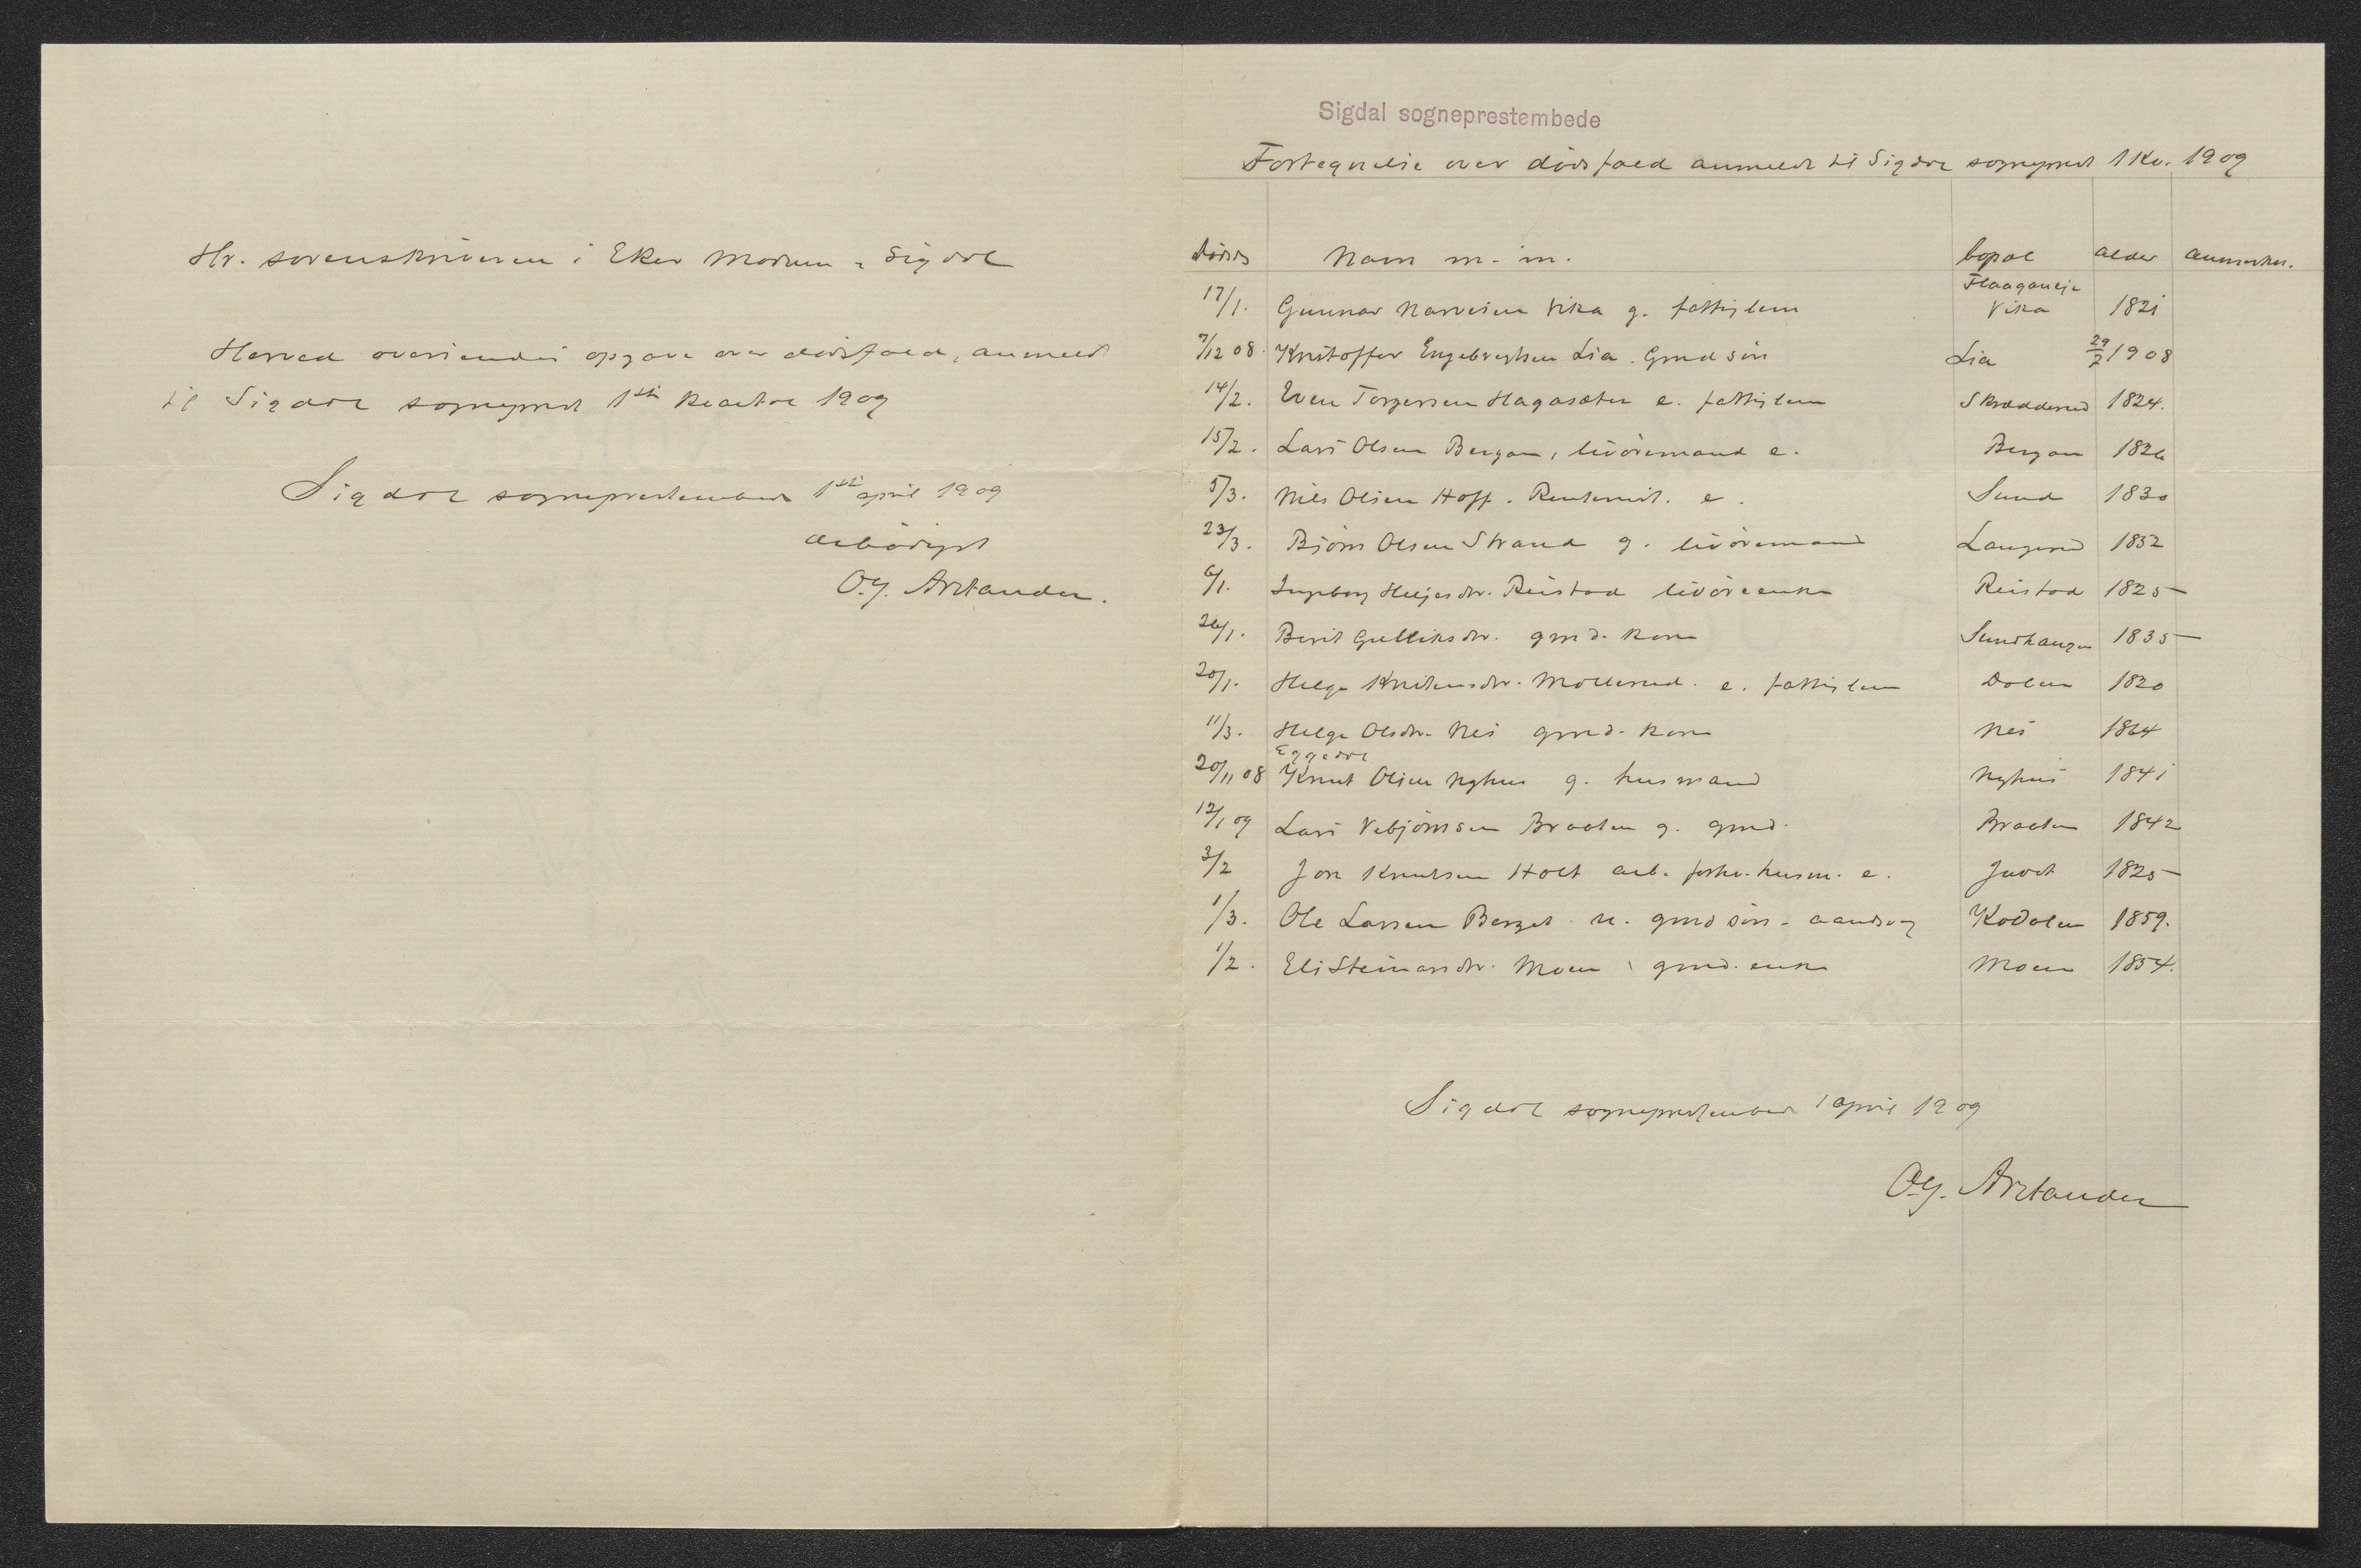 Hr. sorenskriveren i Eker Modum & Sigdal
Herved oversendes opgave over dødsfald, anmeldt
til Sigdal sogneprest 1ste kvartal 1909
Sigdal sogneprestembede 1ste april 1909
ærbødigst
O.J. Arctander.
Sigdal sogneprestembede
Fortegnelse over dødsfald anmeldt til Sigdal sogneprest 1 Kv. 1909
dødsd Navn m. m. bopæl alder anmerkn.
17/1. Gunnar Narvesen Vika g. fattiglem Flaaganeje Vika 1821
7/12 08. Kristoffer Engebregtsen Lia. Gmd søn Lia 29/7 1908
14/2. Even Torgersen Hagasæter e. fattiglem Skrædderud 1824.
15/2. Lars Olsen Bergan, livøremand e. Bergan 1826
5/3. Nils Olsen Hoff. Rentenist. e. Sund 1830
23/3. Bjørn Olsen Strand g. livøremand Langerud 1832
6/1. Ingeborg Helgesdtr. Reistad livøreenke Reistad 1825
26/1. Berit Gulliksdtr. gmd. kone Sundhaugen 1835
20/1. Helge Kristensdtr. Møllerud. e. fattiglem Dolen 1820
11/3. Helge Olsdtr. Nes gmd. kone Nes 1864
Eggedal
20/11 08 Knut Olsen Nyhus g. husmand Nyhus 1841
12/1 09 Lars Vebjørnsen Braaten g. gmd. Braaten 1842
3/2 Jon Knutsen Holt arb. forhv. husm. e. 1825
1/3. Ole Larsen Berget u. gmd søn - aandsvg Kodolen 1859.
1/2. Eli Steinarsdtr. Moen gmd. enke Moen 1854.
Sigdal sogneprestembede 1 april 1909
O.J. Arctander